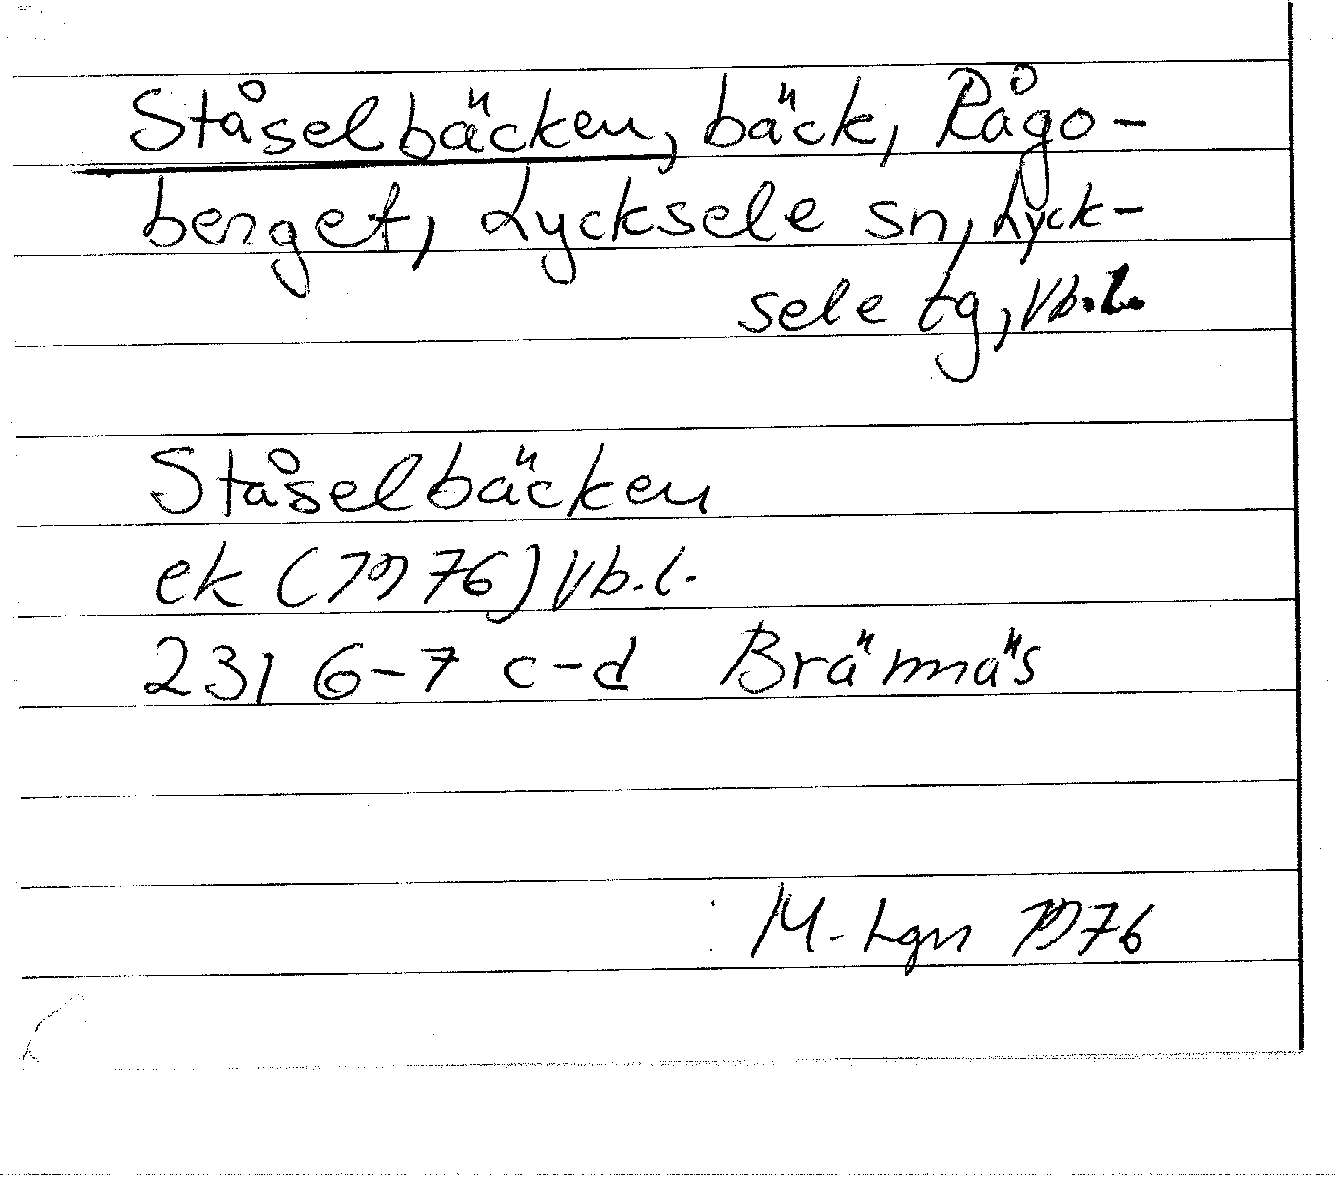 Ståselbäcken, bäck, Rågo-
berget, Lycksele sn, Lyck-
sele tg, Vb.l.
Ståselbäcken
ek (1976) Vb.l.
231 6-7 c-d Brännäs
M-Lgn 1976